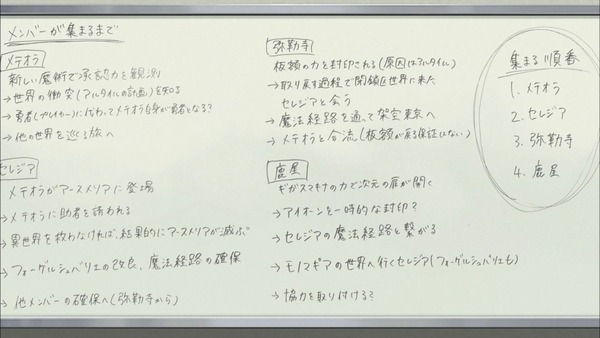 メンバーが集まるまで
メテオラ
新しい魔術で承認力を観測
→世界の衝突(アルタイルの計画)を知る
→勇者(プレイヤー)に代わってメテオラ自身が勇者となる?
→他の世界を巡る旅へ
セレジア
メテオラがアースメリアに登場
→メテオラに助者を請われる
→異世界を救わなければ、結果的にアースメリアが滅ぶ
→フォーゲルシュバリエの改良、魔法経路の確保
→他メンバーの確保へ(弥勒寺から)
弥勒寺
板額の力を封印される(原因はアルタイル)
→取り戻す過程で閉鎖区世界に来た
セレジアと会う
→魔法経路を通って架空東京へ
→メテオラと合流(板額が戻る保証はない)
鹿屋
ギガスマキナの力で次元の扉が開く
→アイオーンを一時的な封印?
→セレジアの魔法経路と繋がる
→モノマギアの世界へ行くセレジア(フォーゲルシュバリエも)
→協力を取り付ける?
集まる順番
1. メテオラ
2. セレジア
3. 弥勒寺
4. 鹿屋